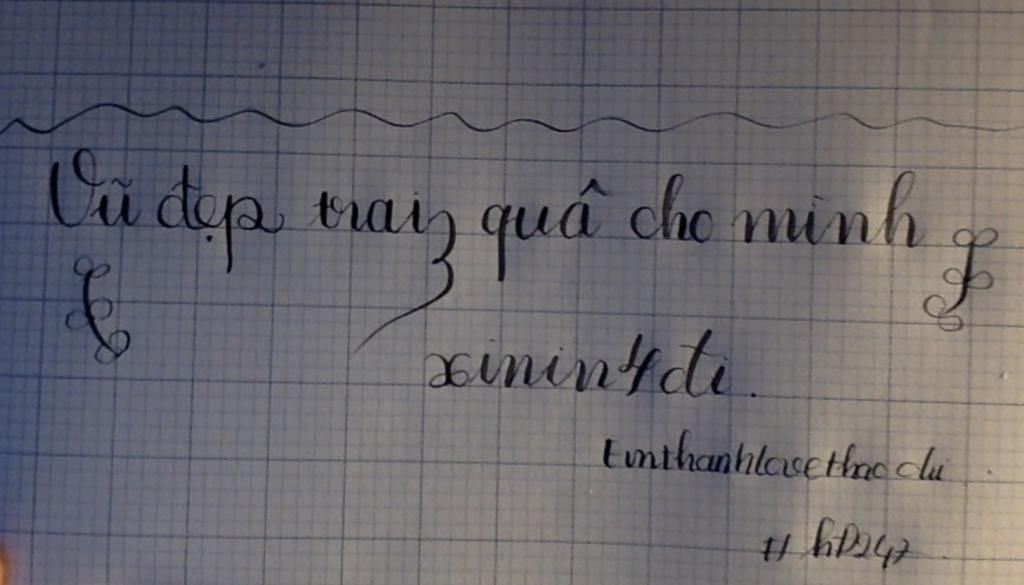 Vũ đẹp trai quâ cho mình
xinin4 đi.
# hP247